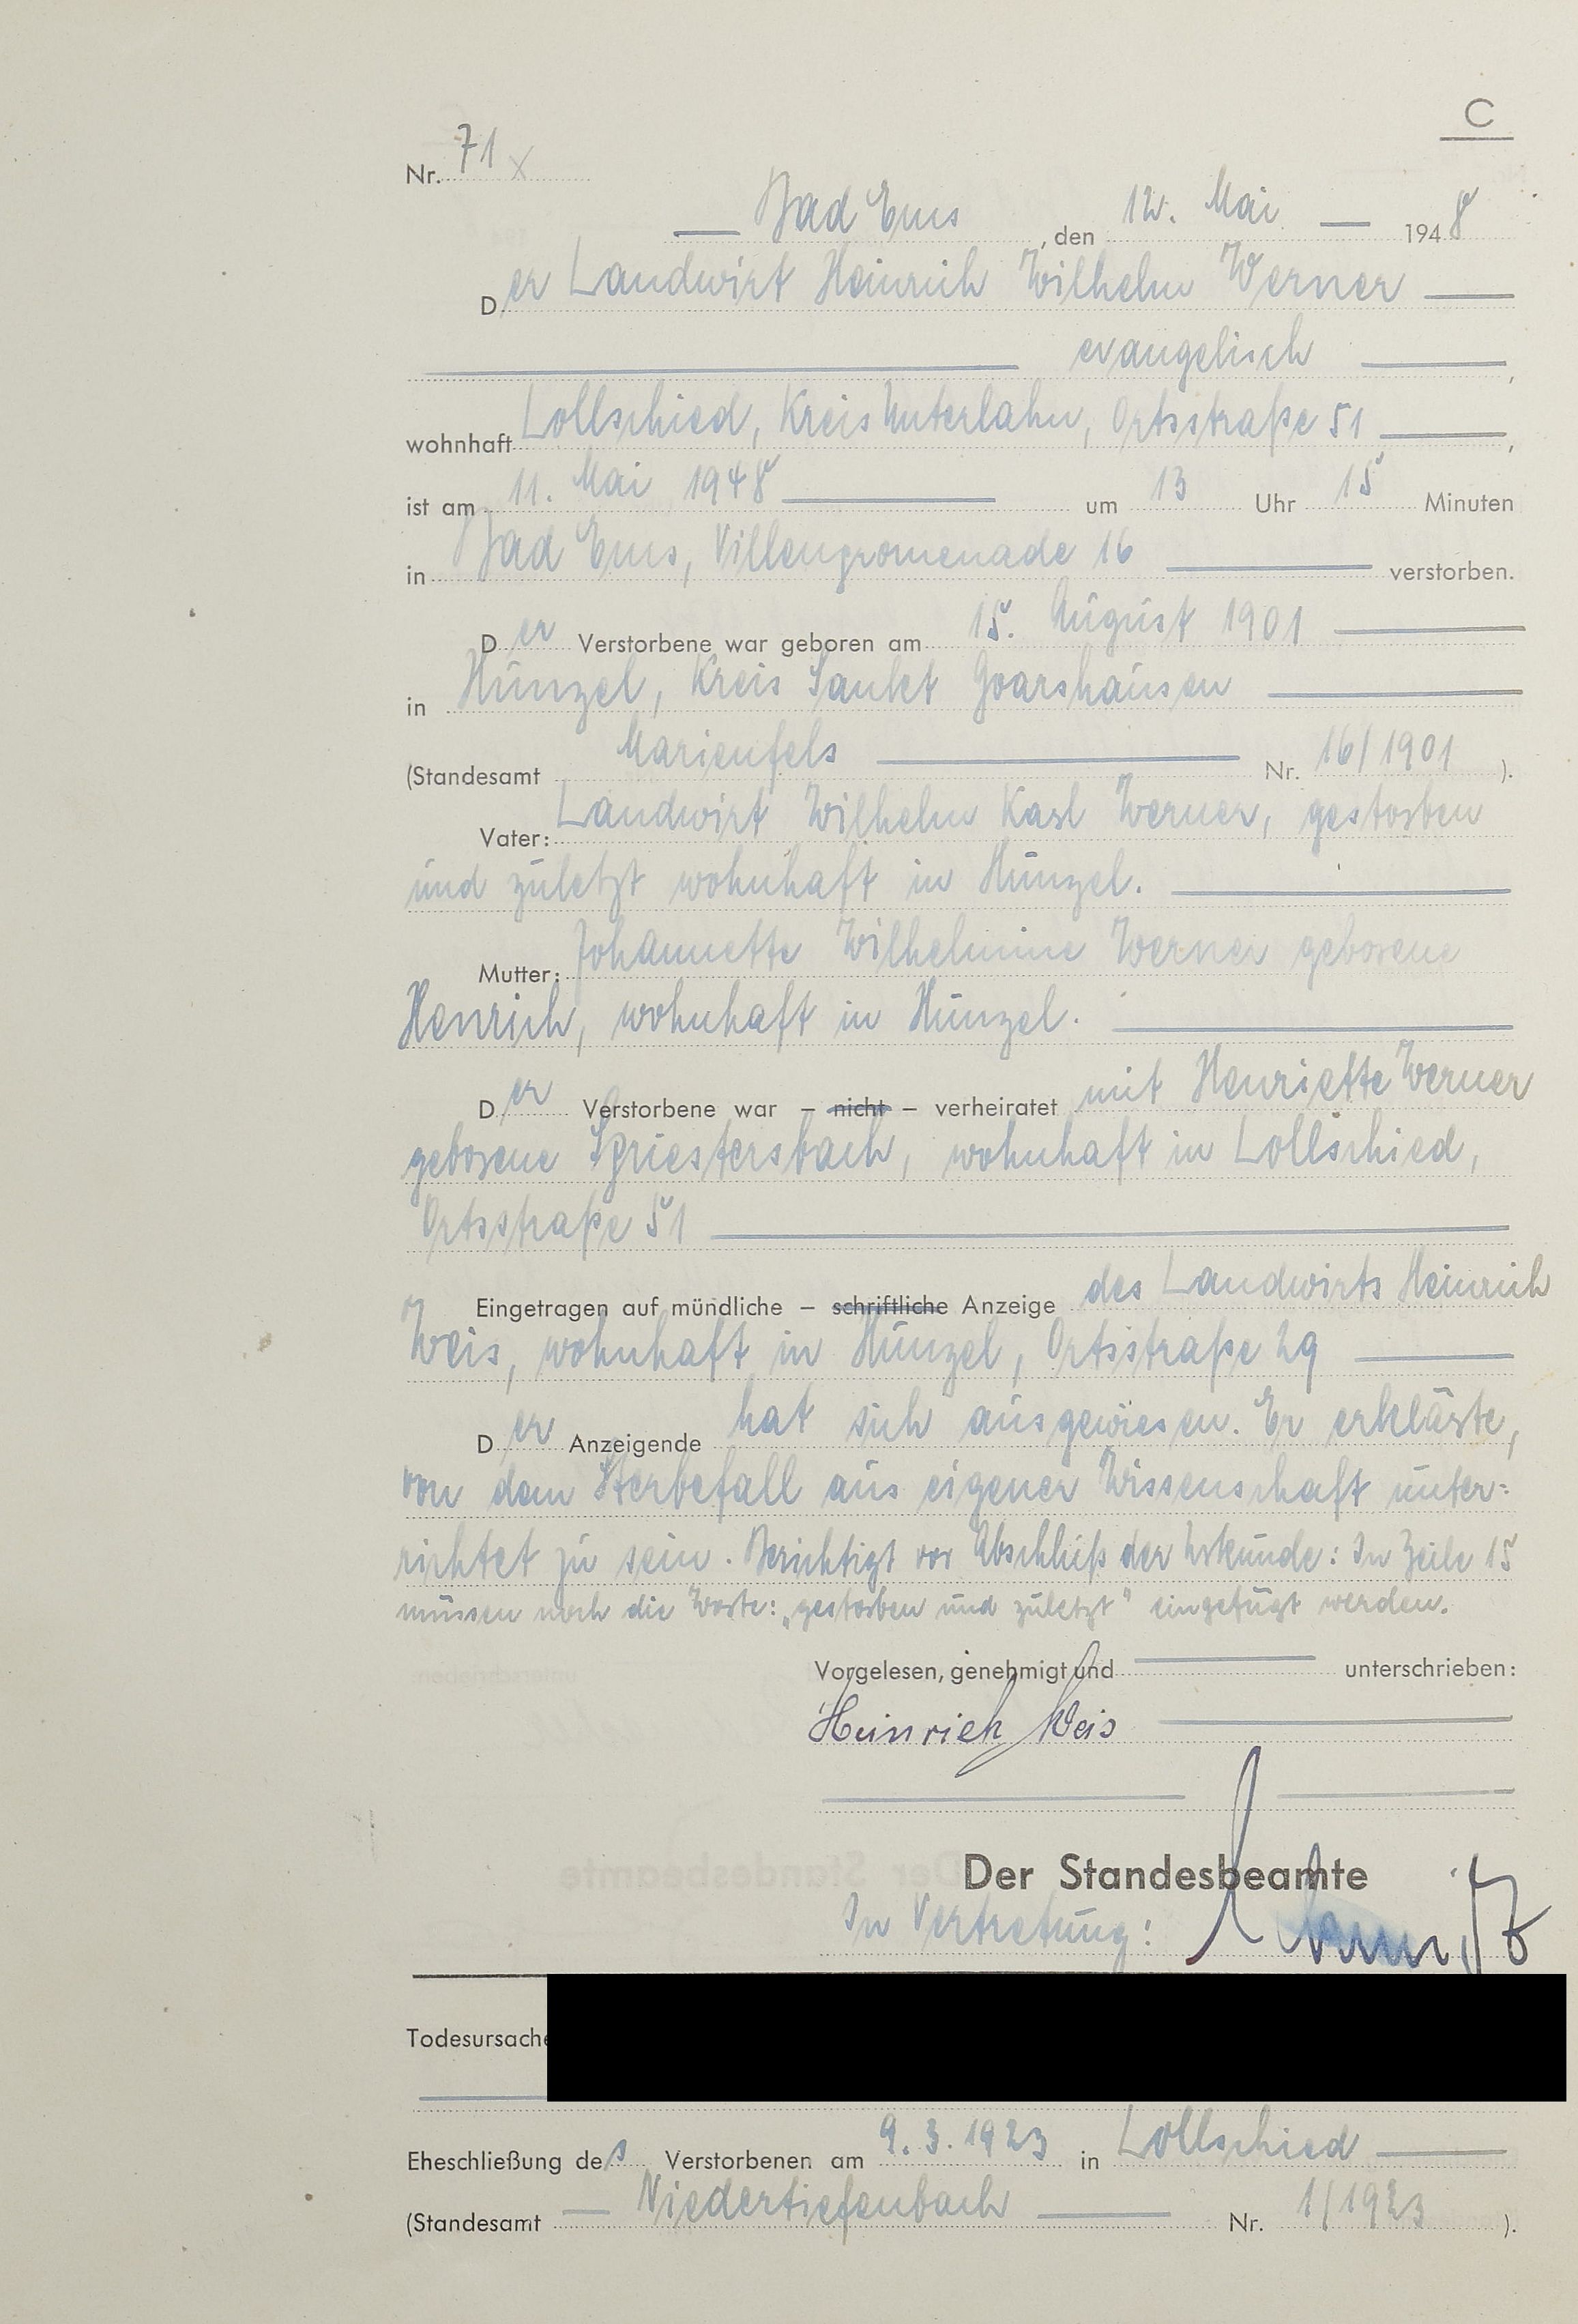 C
Nr. 71 x
Bad Ems, den 12. Mai 1948
Der Landwirt Heinrich Wilhelm Werner
evangelisch,
wohnhaft Lollschied, Kreis Unterlahn, Ortsstraße 51,
ist am 11. Mai 1948 um 13 Uhr 15 Minuten
in Bad Ems, Villenpromenade 16 verstorben.
Der Verstorbene war geboren am 15. August 1901
in Hunzel, Kreis Sankt Goarshausen
(Standesamt Marienfels Nr. 16/1901 ).
Vater: Landwirt Wilhelm Karl Werner, gestorben
und zuletzt wohnhaft in Hunzel.
Mutter: Johannette Wilhelmine Werner geborene
Henrich, wohnhaft in Hunzel.
Der Verstorbene war – nicht – verheiratet mit Henriette Werner
geborene Spriestersbach, wohnhaft in Lollschied,
Ortsstraße 51
Eingetragen auf mündliche – schriftliche Anzeige des Landwirts Heinrich
Weis, wohnhaft in Hunzel, Ortsstraße 29
Der Anzeigende hat sich ausgewiesen. Er erklärte,
von dem Sterbefall aus eigener Wissenschaft unter:
richtet zu sein. Berichtigt vor Abschluß der Urkunde: In Zeile 15
müssen noch die Worte: „gestorben und zuletzt" eingefügt werden.
Vorgelesen, genehmigt und unterschrieben:
Heinrich Weis
Der Standesbeamte
In Vertretung:
Todesursache
Eheschließung des Verstorbenen am 9.3.1923 in Lollschied
(Standesamt Niedertiefenbach Nr. 1/1923 ).